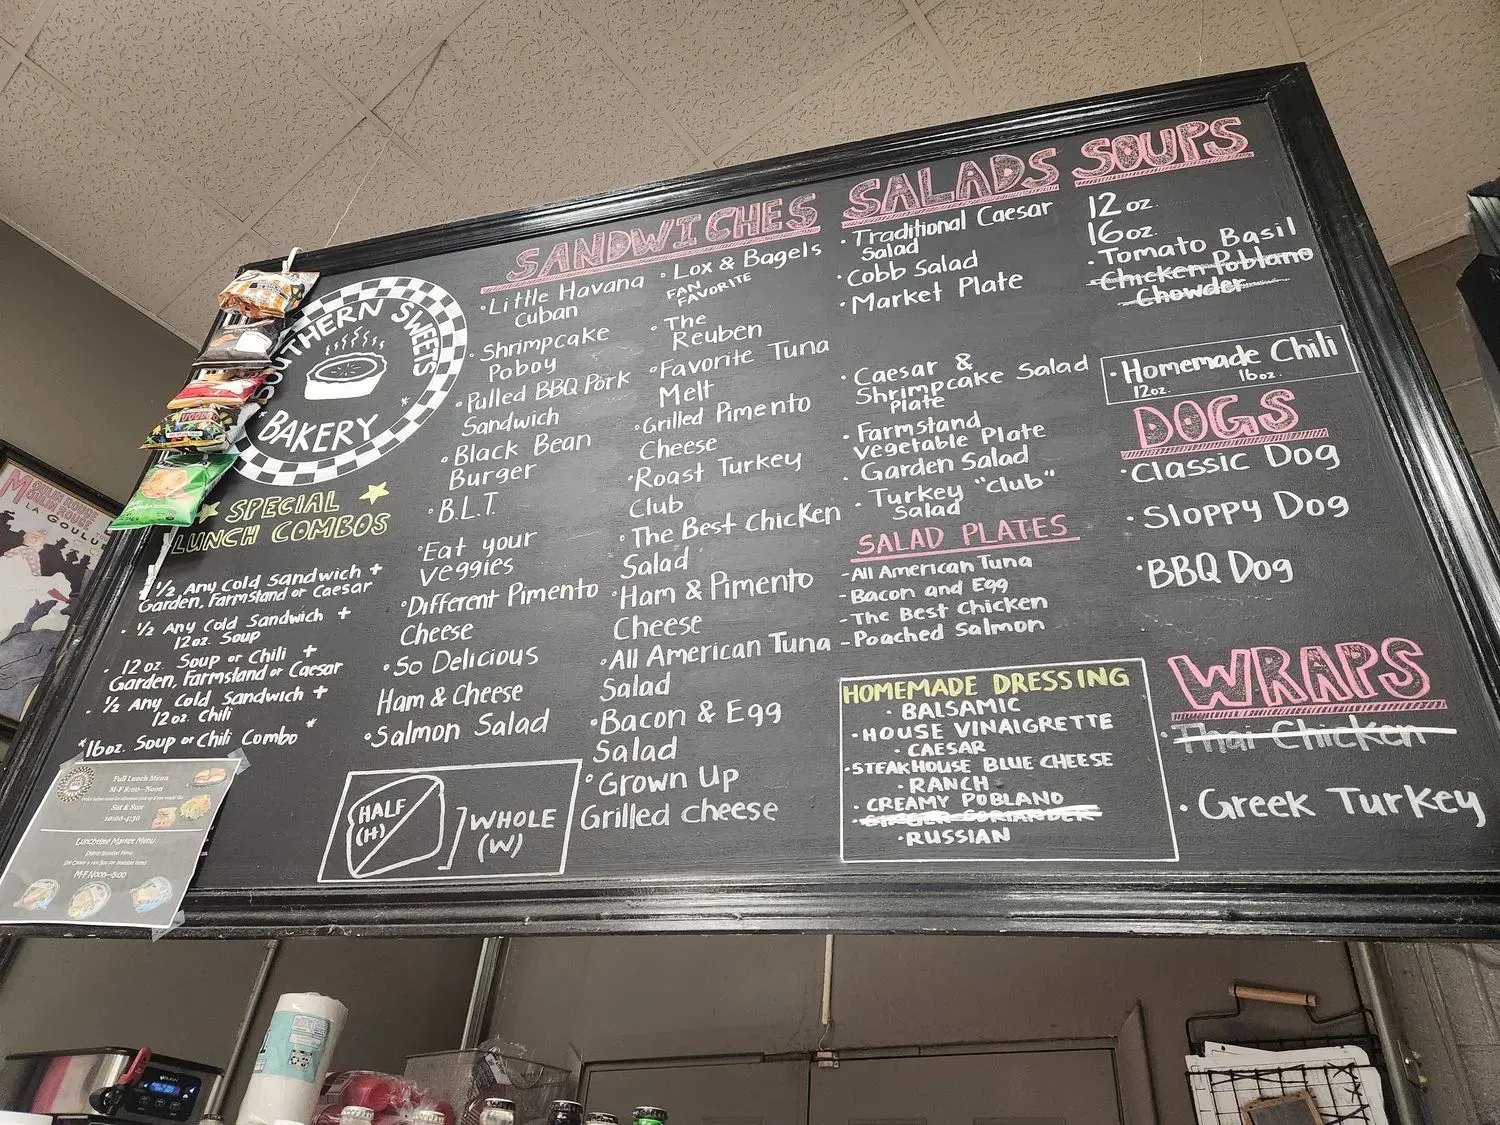 SOUTHERN SWEETS
BAKERY
SPECIAL
LUNCH COMBOS
1/2 Any Cold Sandwich +
Garden, Farmstand or Caesar
1/2 Any Cold Sandwich +
12oz. Soup
12 oz. Soup or Chili +
Garden, Farmstand or Caesar
1/2 Any Cold Sandwich +
12oz. Chili
*16oz. Soup or Chili Combo*
Full Lunch Menu
M-F 8:00—Noon
Sat & Sun
10:00-4:30
Lunchtime Market Menu
M-F Noon—5:00
MOULIN ROUGE
MOULIN ROUGE
LA GOULUE
SANDWICHES
• Little Havana
Cuban
• Shrimpcake
Poboy
• Pulled BBQ Pork
Sandwich
• Black Bean
Burger
• B.L.T.
• Eat your
veggies
• Different Pimento
Cheese
• So Delicious
Ham & Cheese
• Salmon Salad
HALF
(H)
WHOLE
(W)
• Lox & Bagels
FAN
FAVORITE
• The
Reuben
• Favorite Tuna
Melt
• Grilled Pimento
Cheese
• Roast Turkey
Club
• The Best Chicken
Salad
• Ham & Pimento
Cheese
• All American Tuna
Salad
• Bacon & Egg
Salad
• Grown Up
Grilled Cheese
SALADS
• Traditional Caesar
Salad
• Cobb Salad
• Market Plate
• Caesar &
Shrimpcake Salad
Plate
• Farmstand
vegetable Plate
• Garden Salad
• Turkey "club"
Salad
SALAD PLATES
- All American Tuna
- Bacon and Egg
- The Best Chicken
- Poached Salmon
HOMEMADE DRESSING
• BALSAMIC
• HOUSE VINAIGRETTE
• CAESAR
• STEAKHOUSE BLUE CHEESE
• RANCH
• CREAMY POBLANO
• GINGER CORIANDER
• RUSSIAN
SOUPS
12 oz.
16 oz.
• Tomato Basil
• Chicken Poblano
Chowder
• Homemade Chili
12oz. 16oz.
DOGS
• Classic Dog
• Sloppy Dog
• BBQ Dog
WRAPS
• Thai Chicken
• Greek Turkey